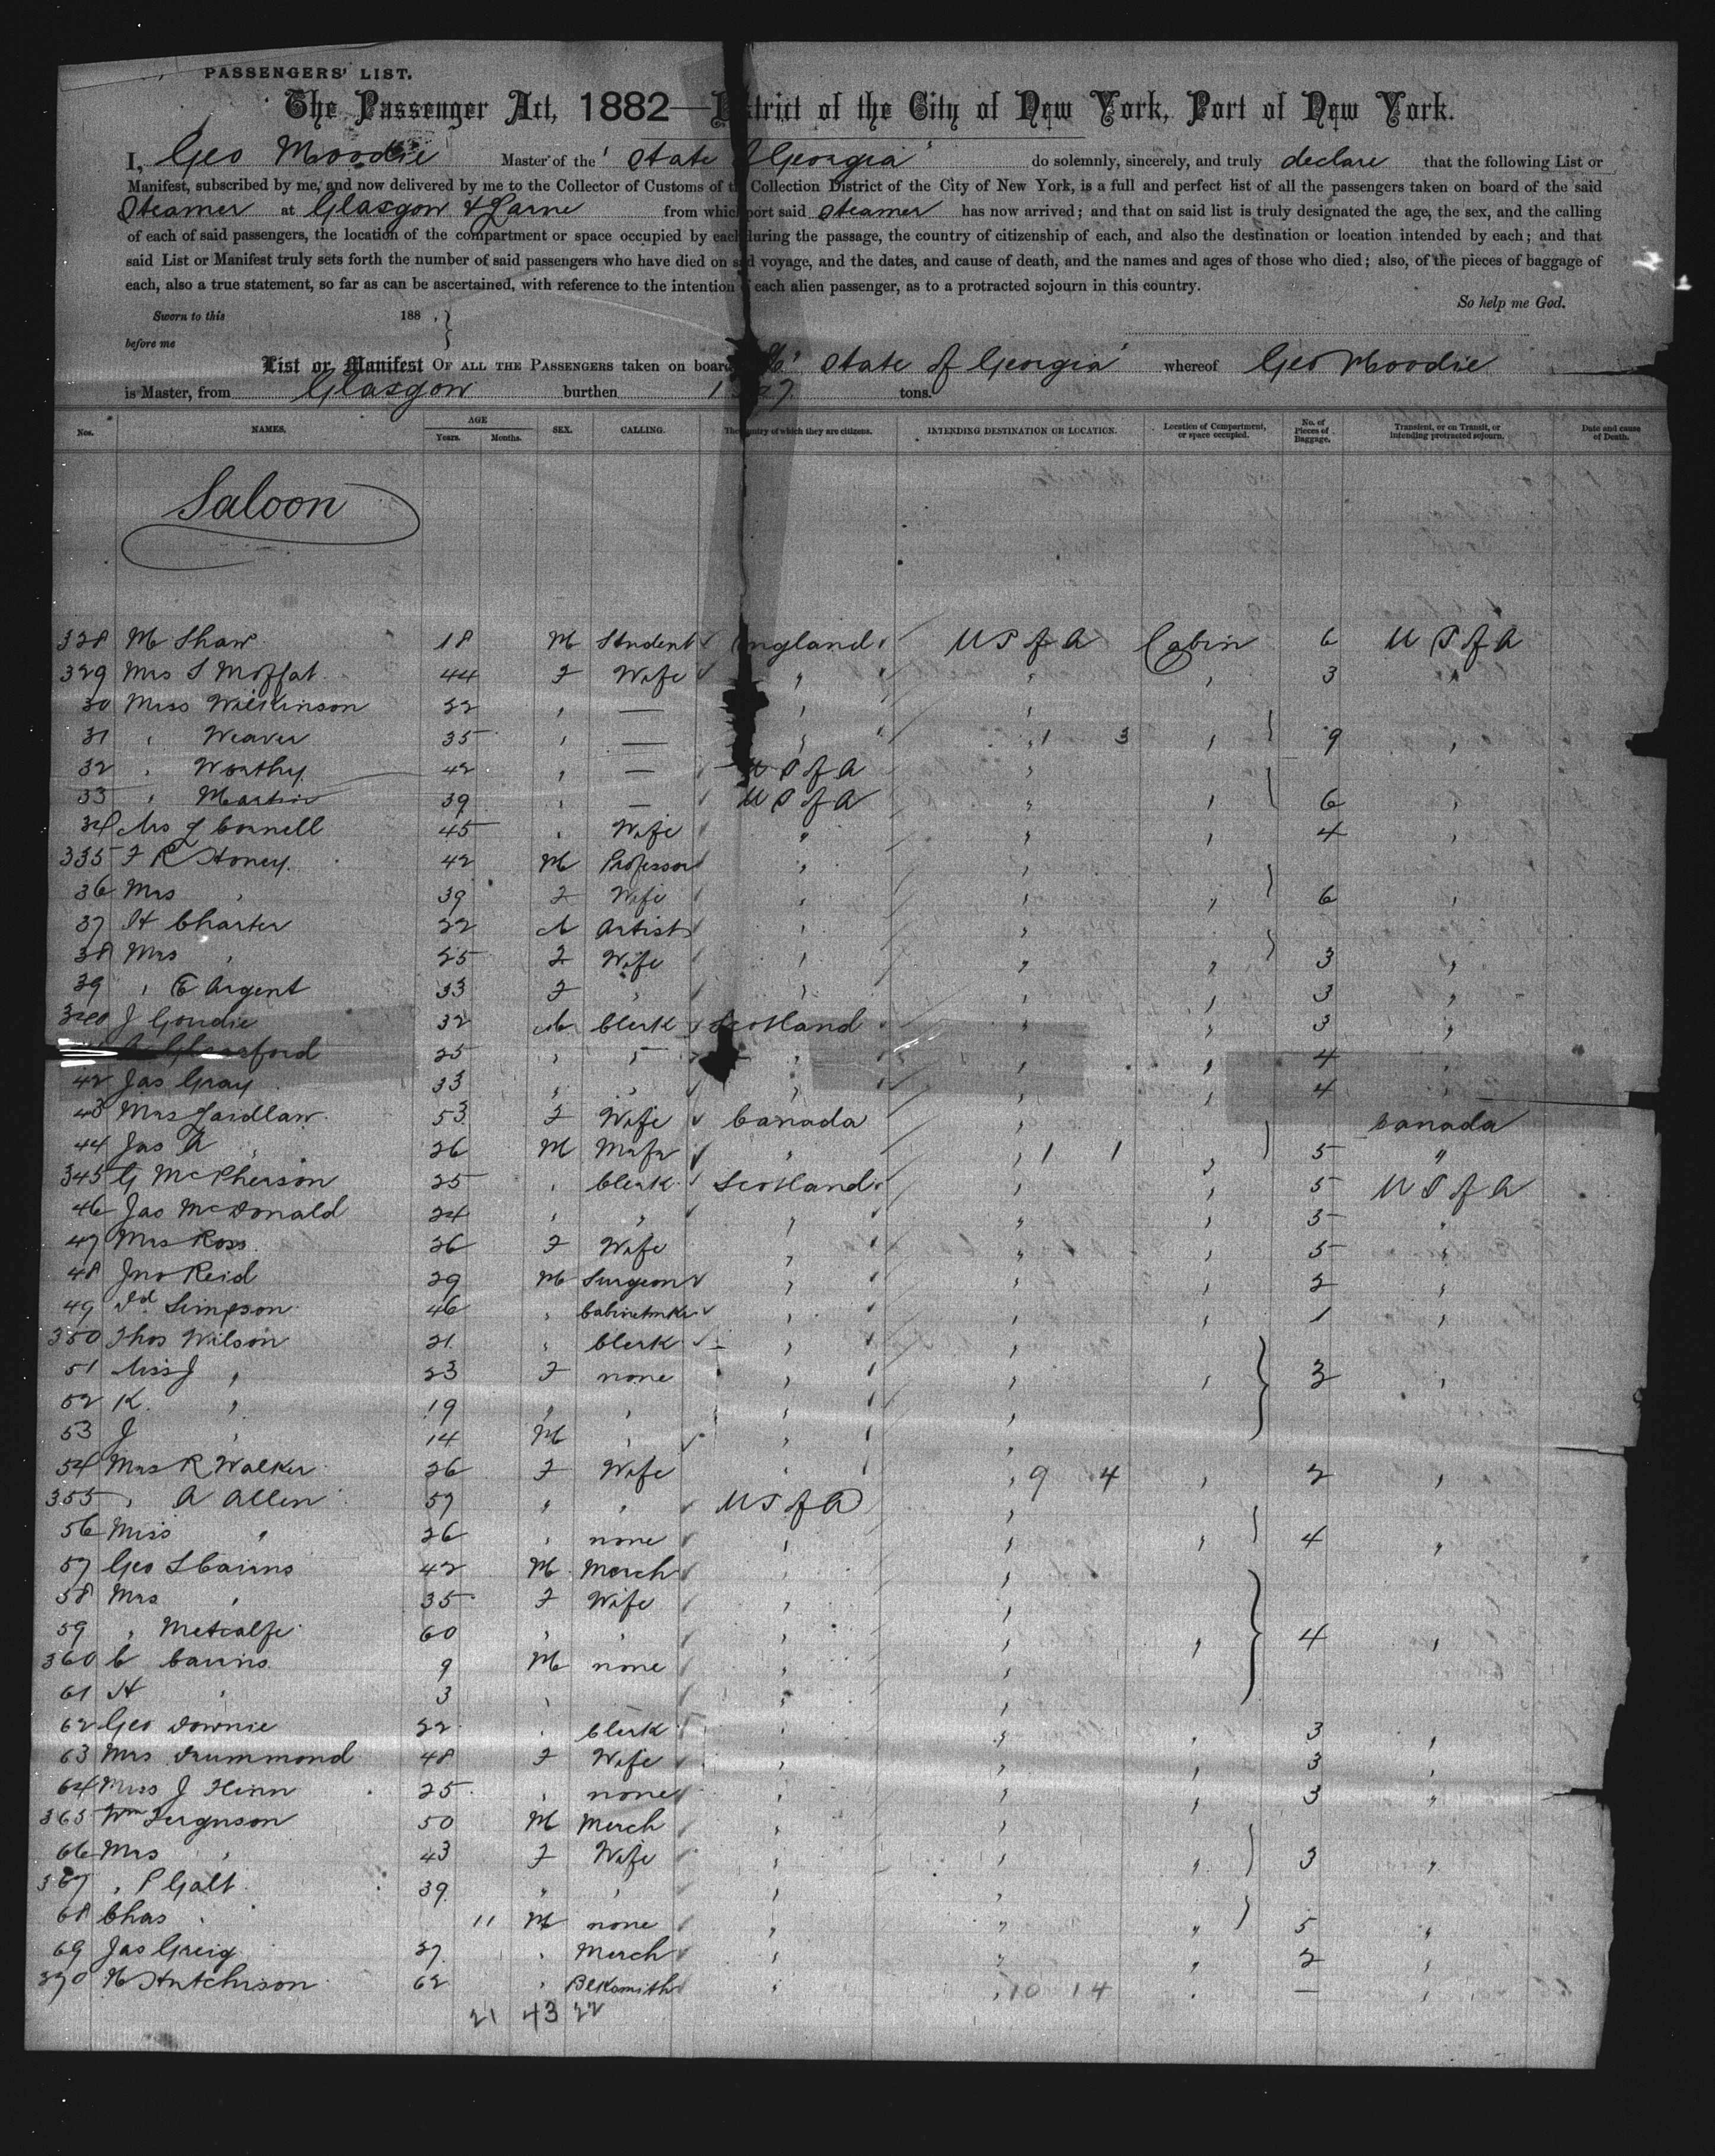 PASSENGERS' LIST.
The Passenger Act, 1882— District of the City of New York, Port of New York.
I, Geo Moodie Master of the 'State Georgia' do solemnly, sincerely, and truly declare that the following List or
Manifest, subscribed by me, and now delivered by me to the Collector of Customs of the Collection District of the City of New York, is a full and perfect list of all the passengers taken on board of the said
Steamer at Glasgow & Larne from which port said steamer has now arrived; and that on said list is truly designated the age, the sex, and the calling
of each of said passengers, the location of the compartment or space occupied by each during the passage, the country of citizenship of each, and also the destination or location intended by each; and that
said List or Manifest truly sets forth the number of said passengers who have died on said voyage, and the dates, and cause of death, and the names and ages of those who died; also, of the pieces of baggage of
each, also a true statement, so far as can be ascertained, with reference to the intention each alien passenger, as to a protracted sojourn in this country.
So help me God.
Sworn to this 188 . }
before me
List or Manifest OF ALL THE PASSENGERS taken on board 'State of Georgia' whereof Geo Moodie
is Master, from Glasgow burthen tons.
Nos. NAMES. AGE Years. Months. SEX. CALLING. The Country of which they are citizens. INTENDING DESTINATION OR LOCATION. Location of Compartment, or space occupied. No. of Pieces of Baggage. Transient, or on Transit, or intending protracted sojourn. Date and cause of Death.
Saloon
328 M Shaw 18 M Student England U S of A Cabin 6 U S of A
329 Mrs S Moffat 44 F Wife " " " 3 "
30 Miss Wilkinson 22 " — " "
31 " Weaver 35 " — " " 1 3 " 9 "
32 " Worthy 42 " — U S of A "
33 " Martin 39 " — U S of A " " 6 "
34 Mrs J Connell 45 " Wife " " " 4 "
335 F R Honey 42 M Professor " "
36 Mrs " 39 F Wife " " " 6 "
37 H Charter 22 M Artist " "
38 Mrs " 25 F Wife " " " 3 "
39 " E Argent 33 F " " " " 3 "
340 J Goudie 32 M Clerk Scotland " " 3 "
25 " " " " " 4 "
42 Jas Gray 33 " " " " " 4 "
43 Mrs Laidlaw 53 F Wife Canada " Canada
44 Jas A " 26 M Mnfr " " 1 1 " 5 "
345 G McPherson 25 " Clerk Scotland " " 5 U S of A
46 Jas McDonald 24 " " " " " 5 "
47 Mrs Ross 26 F Wife " " " 5 "
48 Jno Reid 29 M Surgeon " " " 2 "
49 Dd Simpson 46 " Cabinetmkr " " " 1 "
350 Thos Wilson 21 " Clerk " "
51 Miss J " 23 F none " " " 3 "
52 K " 19 " " " "
53 J " 14 M " " "
54 Mrs R Walker 26 F Wife " " 9 4 " 2 "
355 " A Allen 57 " " U S of A "
56 Miss " 26 " none " " " 4 "
57 Geo S Cairns 42 M Merch " "
58 Mrs " 35 F Wife " "
59 " Metcalfe 60 " " " " " 4 "
360 C Cairns 9 M none " "
61 H " 3 " " "
62 Geo Downie 22 " Clerk " " " 3 "
63 Mrs Drummond 48 F Wife " " " 3 "
64 Miss J Hinn 25 " none " " " 3 "
365 Wm Ferguson 50 M Merch " "
66 Mrs " 43 F Wife " " " 3 "
367 " P Galt 39 " " " "
68 Chas " 11 M none " " " 5 "
69 Jas Greig 27 " Merch " " " 2 "
370 H Hutchison 62 " Blksmith " " 10 14 " — "
21 43 22